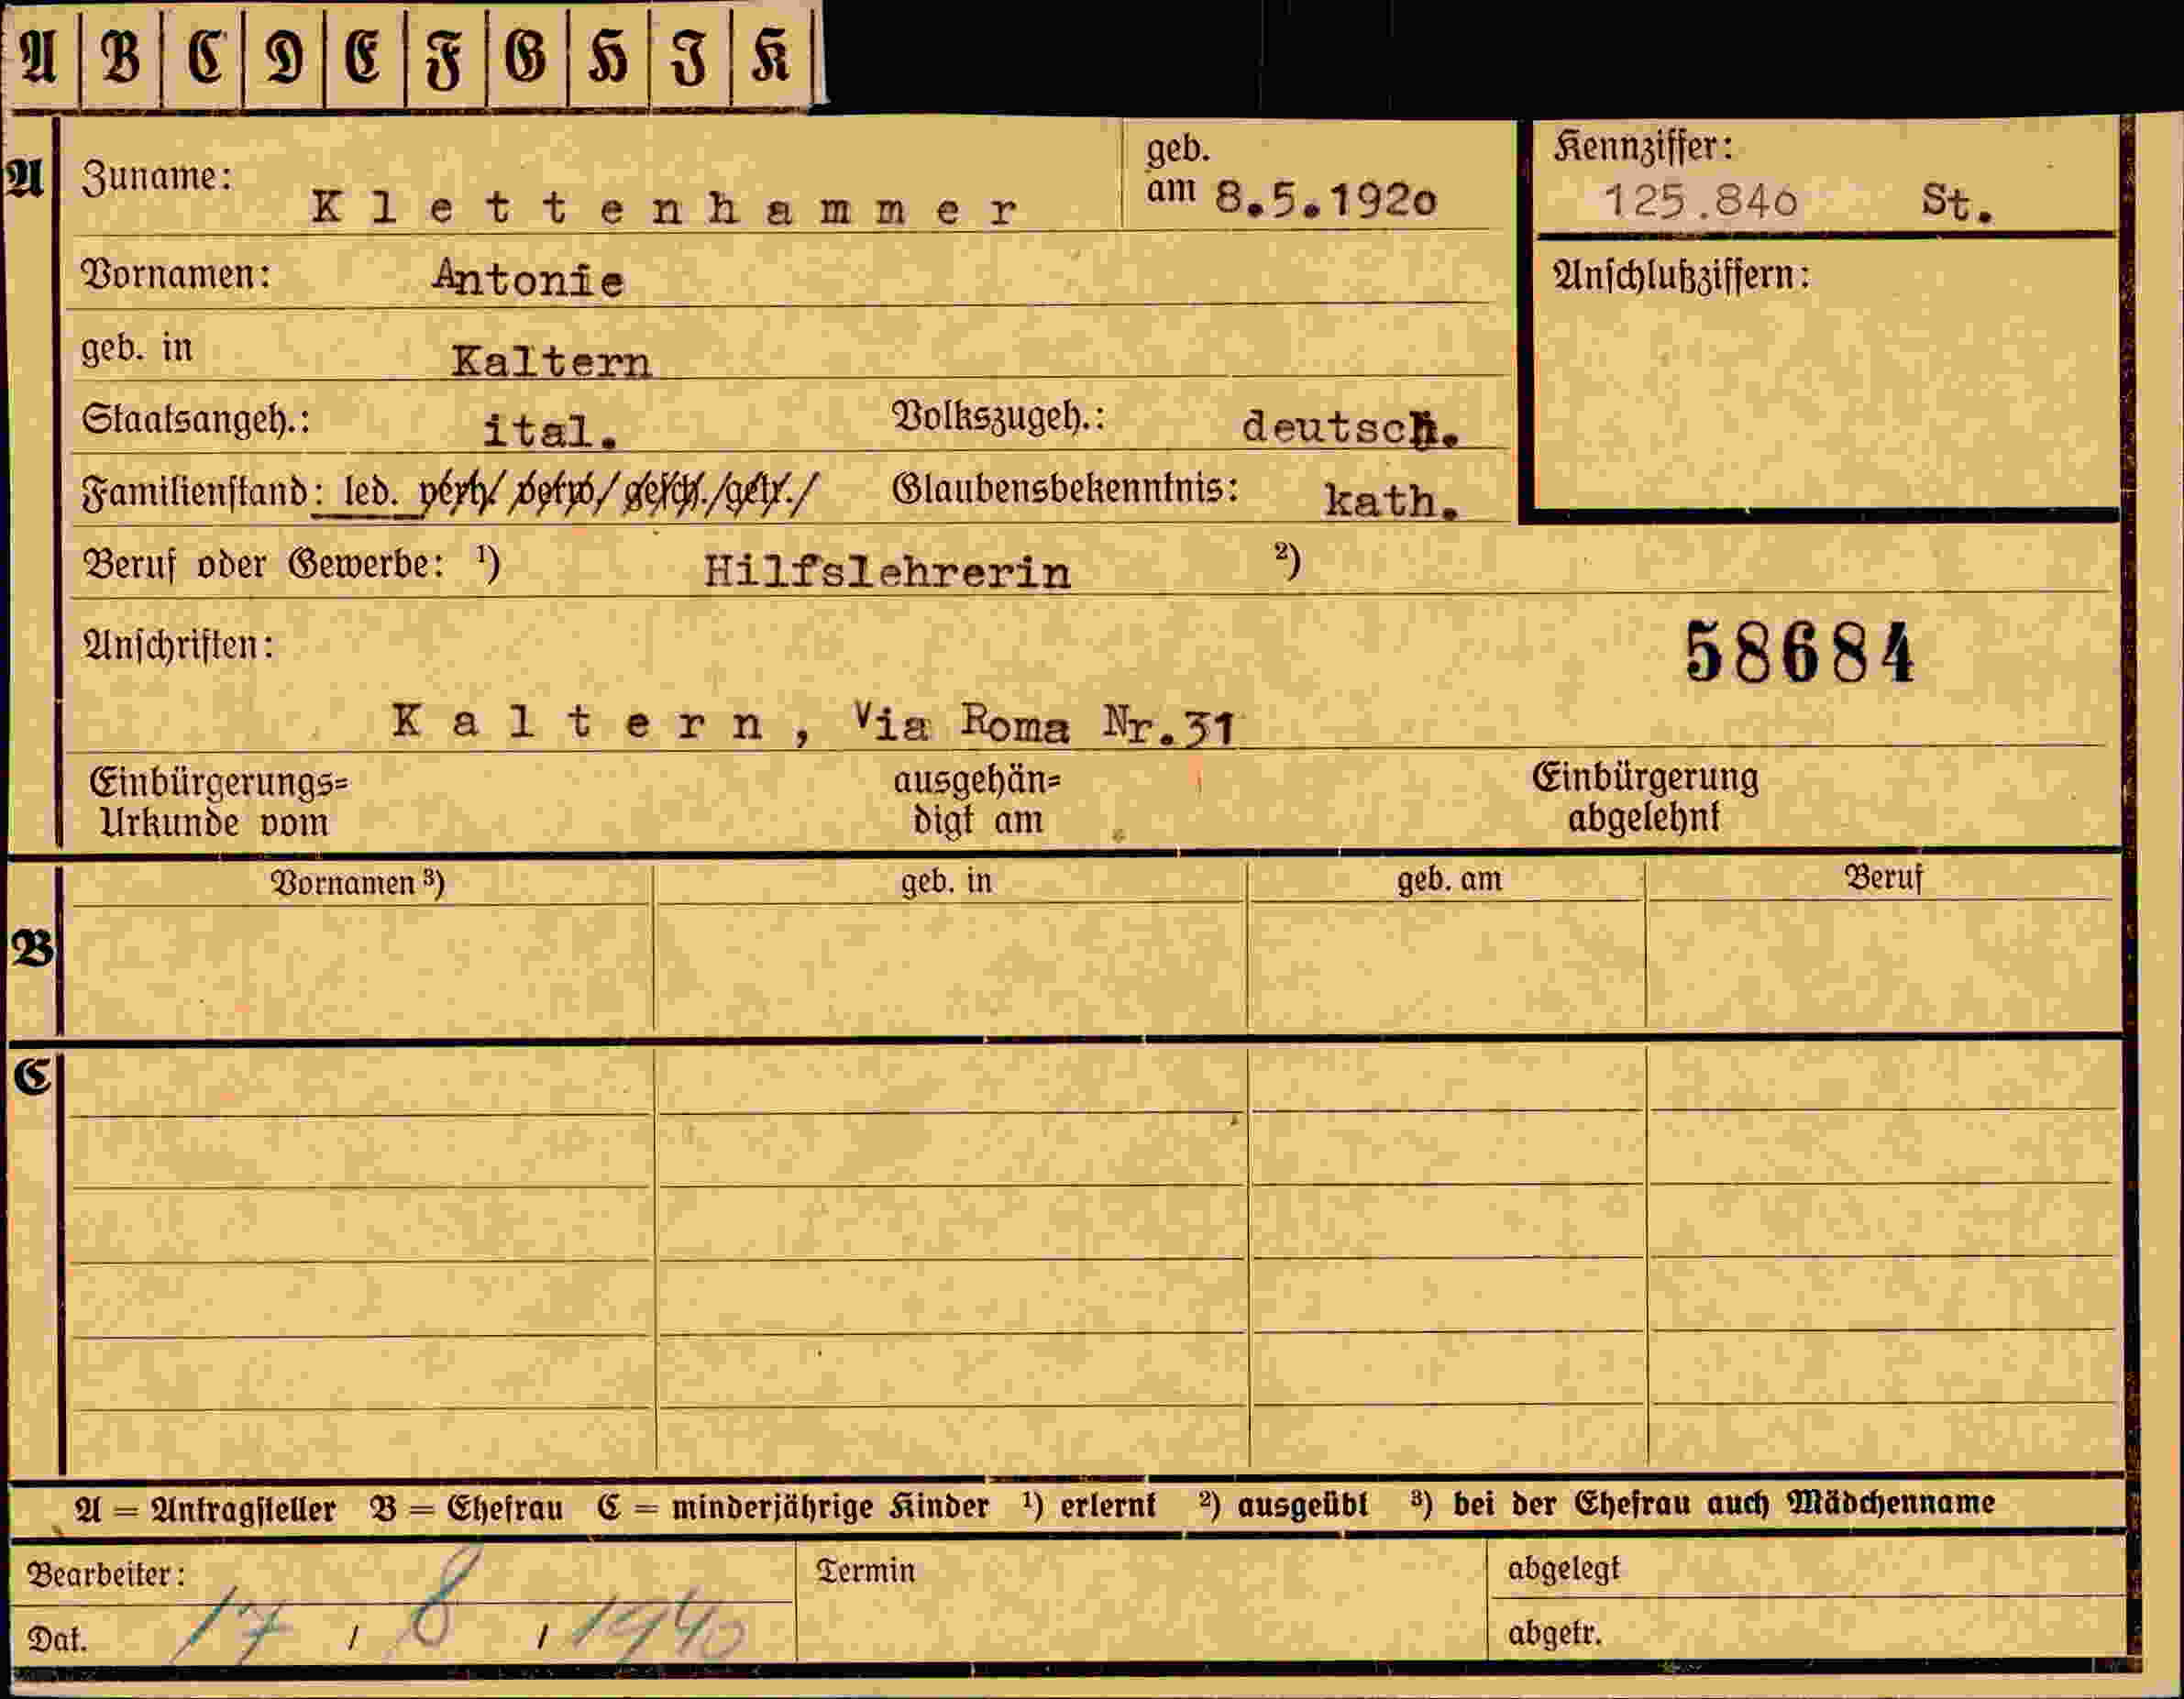 A B C D E F G H I K
A Zuname: Klettenhammer geb. am 8.5.1920 Kennziffer: 125.840 St.
Vornamen: Antonie Anschlußziffern:
geb. in Kaltern
Staatsangeh.: ital. Volkszugeh.: deutsch.
Familienstand: led. verh/ verw/ gesch./getr./ Glaubensbekenntnis: kath.
Beruf oder Gewerbe: ¹) Hilfslehrerin ²)
Anschriften: 58684
Kaltern, Via Roma Nr.31
Einbürgerungs= ausgehän= Einbürgerung
Urkunde vom digt am abgelehnt
Vornamen ³) geb. in geb. am Beruf
B
C
A = Antragsteller B = Ehefrau C = minderjährige Kinder ¹) erlernt ²) ausgeübt ³) bei der Ehefrau auch Mädchenname
Bearbeiter: Termin abgelegt
Dat. 17 / 8 / 1940 abgetr.